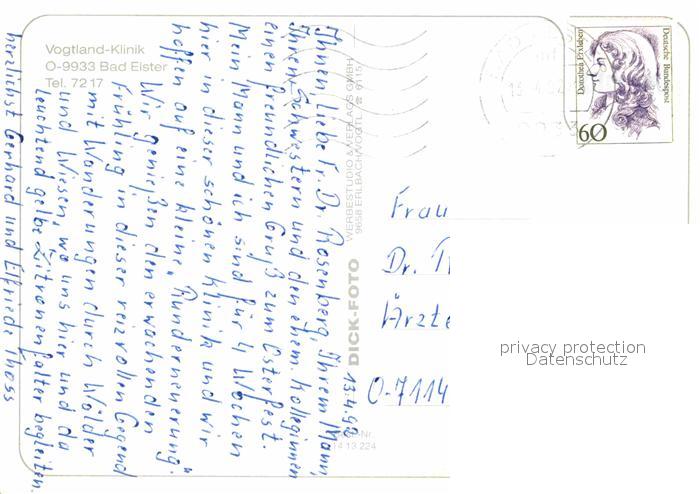 Vogtland-Klinik
O-9933 Bad Elster
Tel. 72 17
Ihnen, liebe Fr. Dr. Rosenberg, Ihrem Mann,
Ihren Schwestern und den ehem. Kolleginnen
einen freundlichen Gruß zum Osterfest.
Mein Mann und ich sind für 4 Wochen
hier in dieser schönen Klinik und wir
hoffen auf eine kleine "Runderneuerung".
Wir genießen den erwachenden
Frühling in dieser reizvollen Gegend
mit Wanderungen durch Wälder
und Wiesen, wo uns hier und da
leuchtend gelbe Zitronenfalter begleiten.
herzlichst Gerhard und Elfriede Thoss
13.4.92
DICK-FOTO
WERBESTUDIO & VERLAGS GMBH
9658 ERLBACH/VOGTL. ☎ 6115
14 13 224
Dorothea Erxleben
Deutsche Bundespost
60
Frau
Dr.
Ärzte
O-7114
privacy protection
Datenschutz